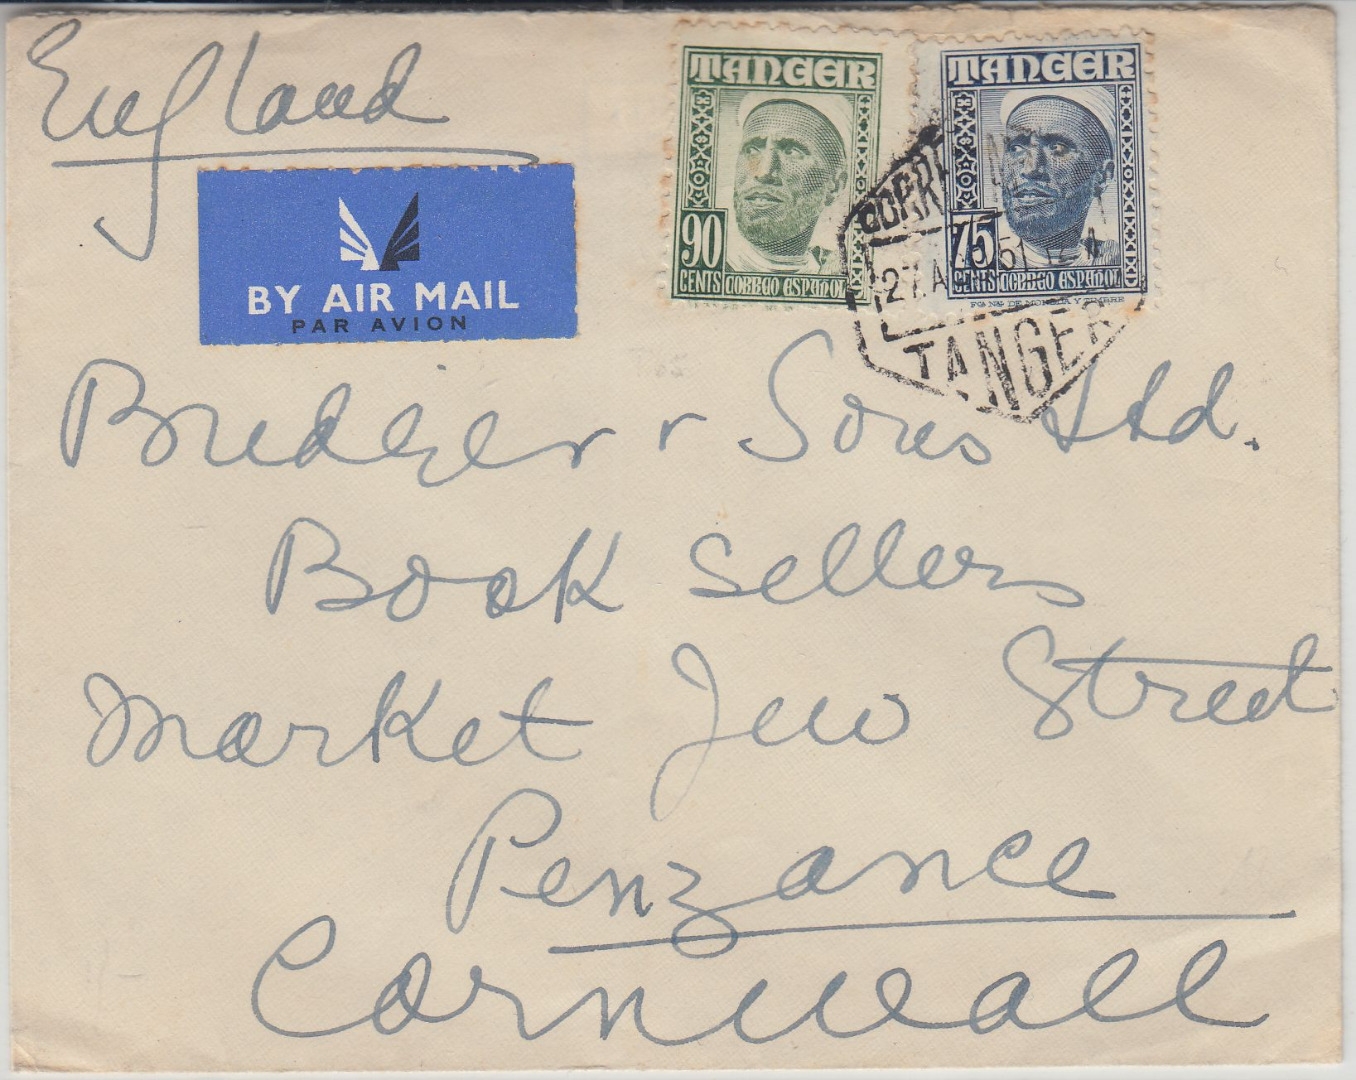 England
TANGER
90
CENTS CORREO ESPAÑOL
TANGER
75
CENTS CORREO ESPAÑOL
FCA NAL DE MONEDA Y TIMBRE
27. A 51
TANGER
BY AIR MAIL
PAR AVION
r Sons Ltd.
Book Sellers
Market Jew Street
Penzance
Cornwall